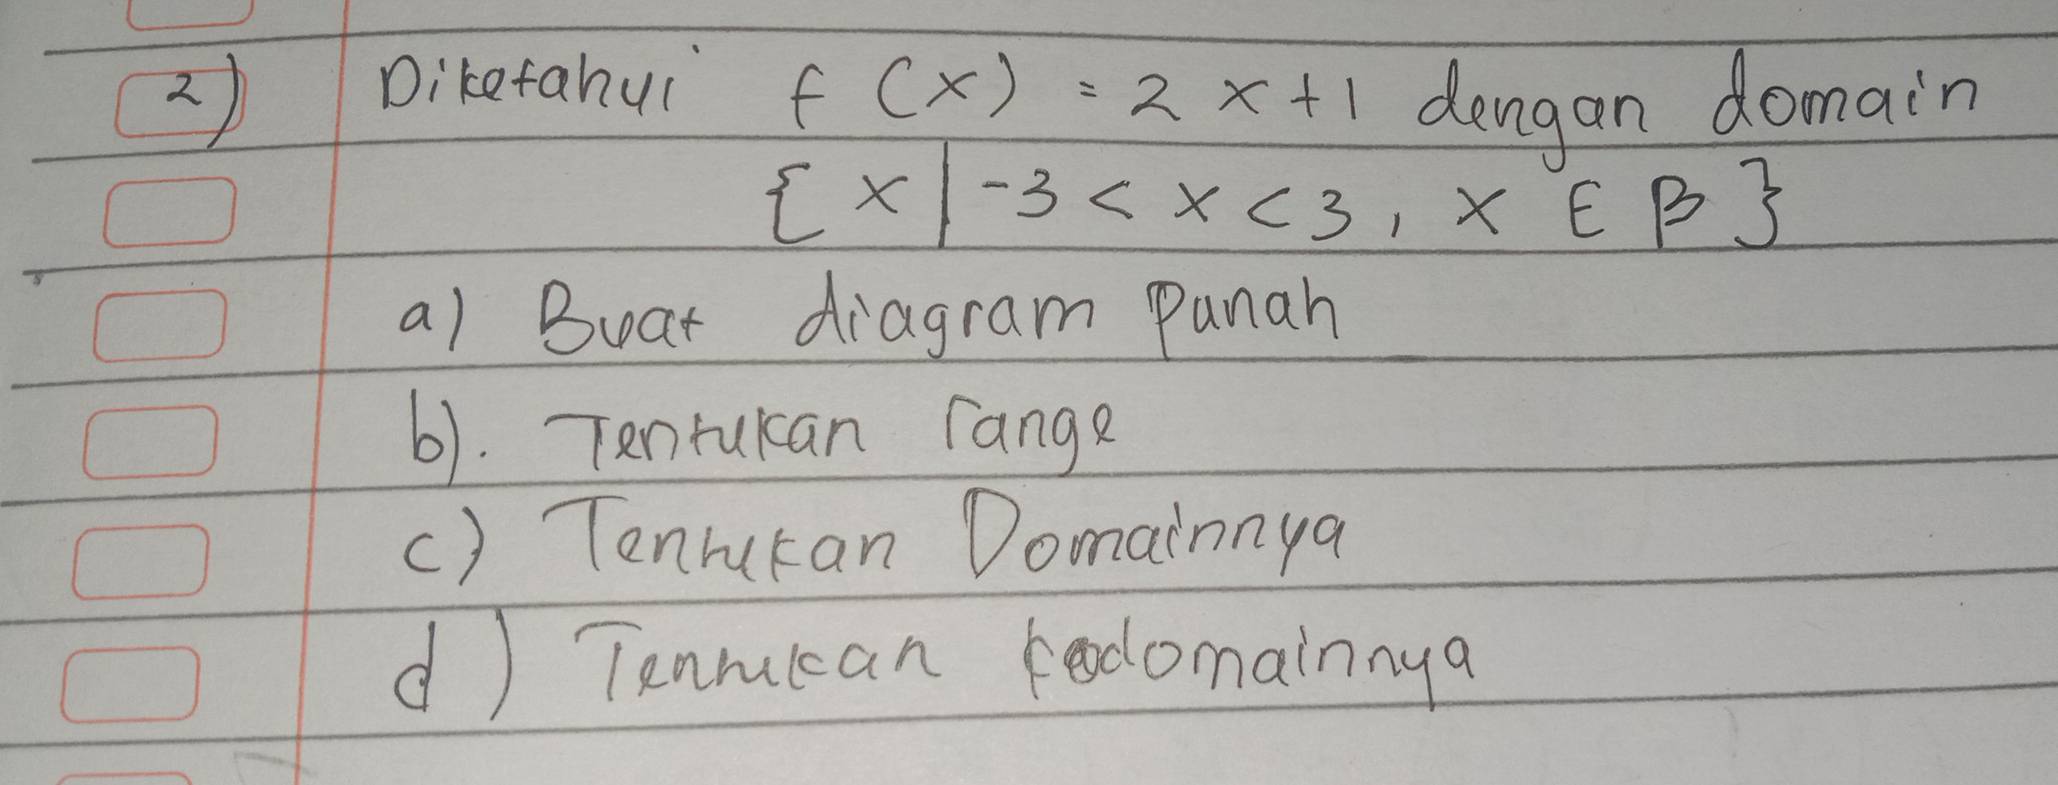 2) Diketahui f (x) = 2x+1 dengan domain
{ x | -3 < x < 3, x ∈ B }
a) Buat diagram panah
b). Tentukan range
c) Tentukan Domainnya
d) Tentukan kodomainnya